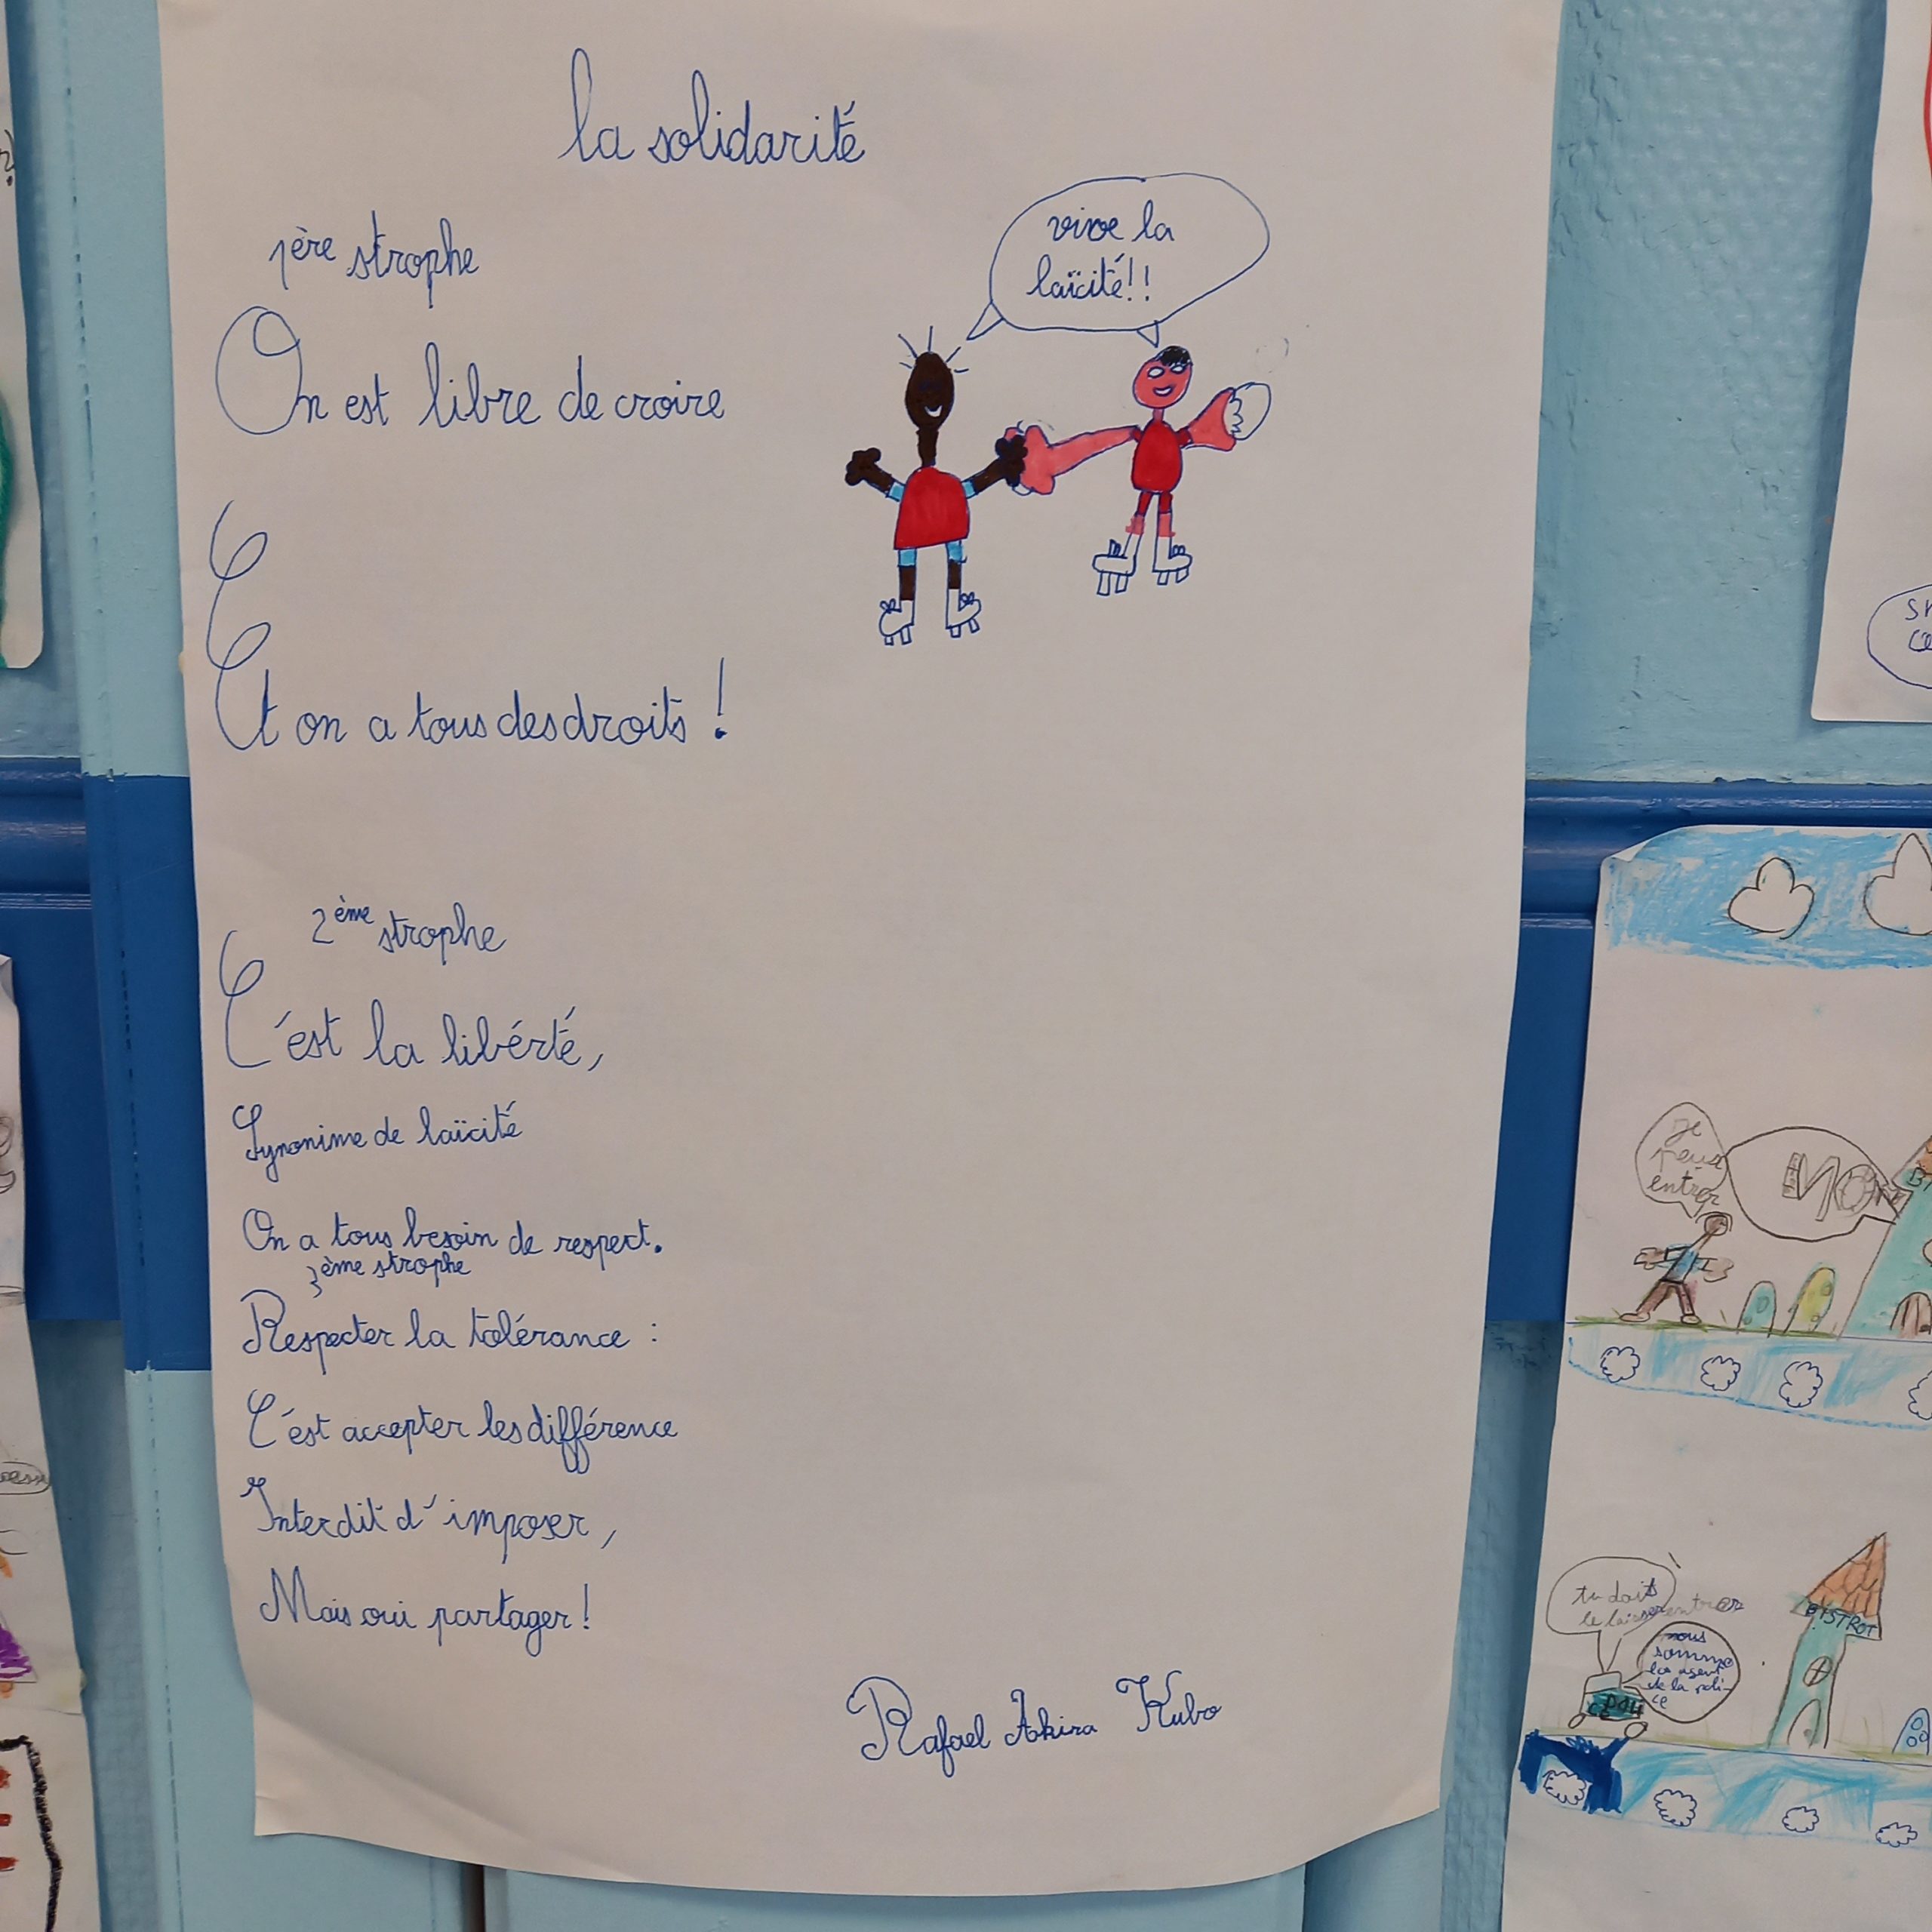 la solidarité
vive la
laïcité!!
1ère strophe
On est libre de croire
Et on a tous des droits !
2ème strophe
C'est la libérté,
Synonime de laïcité
On a tous besoin de respect.
3ème strophe
Respecter la tolérance :
C'est accepter les différence
Interdit d'imposer,
Mais oui partager !
Rafael Akira Kubo
je
peux
entrer
NON
tu doit
le laisser entrer
nous
somme
les agent
de la poli-
ce
BISTROT